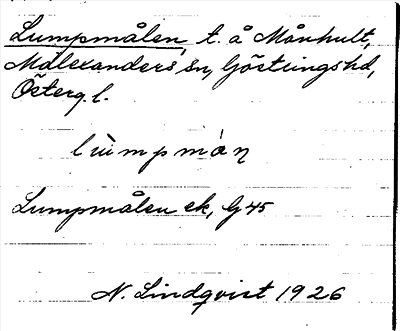 Lumpmålen, t. å Månhult,
Malexanders sn, Göstrings hd,
Österg. l.
lùmpmàɳ
Lumpmålen ek, G 45
N. Lindqvist 1926